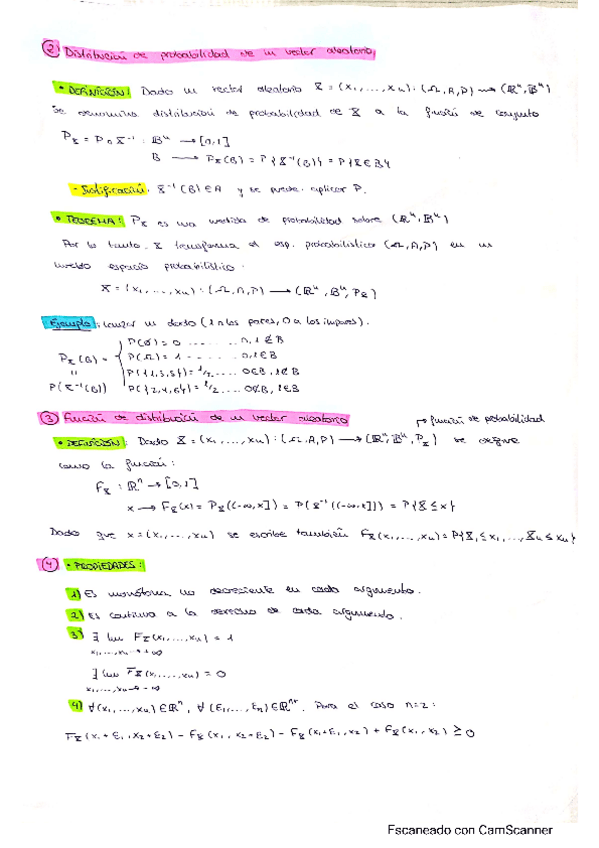 ② Distribución de probabilidad de un vector aleatorio
• DEFINICIÓN: Dado un vector aleatorio X = (X₁, ..., Xₙ): (Ω, A, P) → (ℝⁿ, Bⁿ)
se denomina distribución de probabilidad de X a la función de conjunto
P_X = P ∘ X⁻¹ : Bⁿ → [0,1]
B → P_X(B) = P{X⁻¹(B)} = P{X ∈ B}
- Justificación: X⁻¹(B) ∈ A y se puede aplicar P.
• TEOREMA: P_X es una medida de probabilidad sobre (ℝⁿ, Bⁿ)
Por lo tanto, X transforma el esp. probabilístico (Ω, A, P) en un
nuevo espacio probabilístico.
X = (X₁, ..., Xₙ): (Ω, A, P) → (ℝⁿ, Bⁿ, P_X)
Ejemplo: lanzar un dado (1 a los pares, 0 a los impares).
P(∅) = 0 ........ 0, 1 ∉ B
P_X(B) = P(Ω) = 1 - ...... 0, 1 ∈ B
" P({1,3,5}) = 1/2 .... 0 ∈ B, 1 ∉ B
P(X⁻¹(B)) P({2,4,6}) = 1/2 .... 0 ∉ B, 1 ∈ B
③ Función de distribución de un vector aleatorio
→ función de probabilidad
• DEFINICIÓN: Dado X = (X₁, ..., Xₙ): (Ω, A, P) → (ℝⁿ, Bⁿ, P_X) se define
como la función:
F_X : ℝⁿ → [0,1]
x → F_X(x) = P_X((-∞, x]) = P(X⁻¹((-∞, x])) = P{X ≤ x}
Dado que x = (x₁, ..., xₙ) se escribe también F_X(x₁, ..., xₙ) = P{X₁ ≤ x₁, ..., Xₙ ≤ xₙ}
④ • PROPIEDADES:
1) Es monótona no decreciente en cada argumento.
2) Es continua a la derecha de cada argumento.
3) ∃ lim F_X(x₁, ..., xₙ) = 1
x₁, ..., xₙ → +∞
∃ lim F_X(x₁, ..., xₙ) = 0
x₁, ..., xₙ → -∞
4) ∀(x₁, ..., xₙ) ∈ ℝⁿ, ∀(ε₁, ..., εₙ) ∈ ℝⁿ⁺. Para el caso n=2:
F_X(x₁+ε₁, x₂+ε₂) - F_X(x₁, x₂+ε₂) - F_X(x₁+ε₁, x₂) + F_X(x₁, x₂) ≥ 0
Escaneado con CamScanner